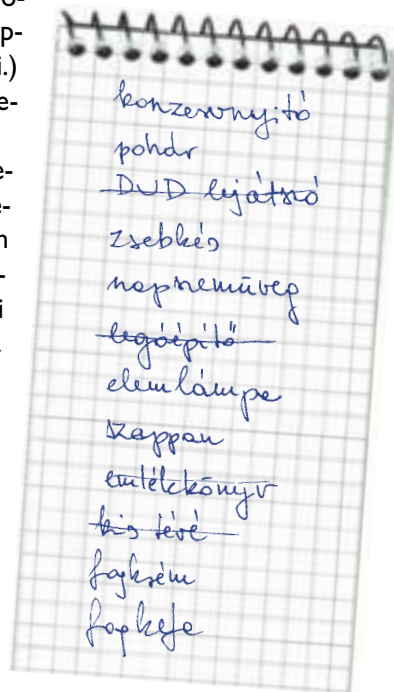 p-
i.)
e-
e-
e-
n
-
i
konzervnyitó
pohár
DVD lejátszó
zsebkés
napszemüveg
legóépítő
elemlámpa
szappan
emlékkönyv
kis tévé
fogkrém
fogkefe